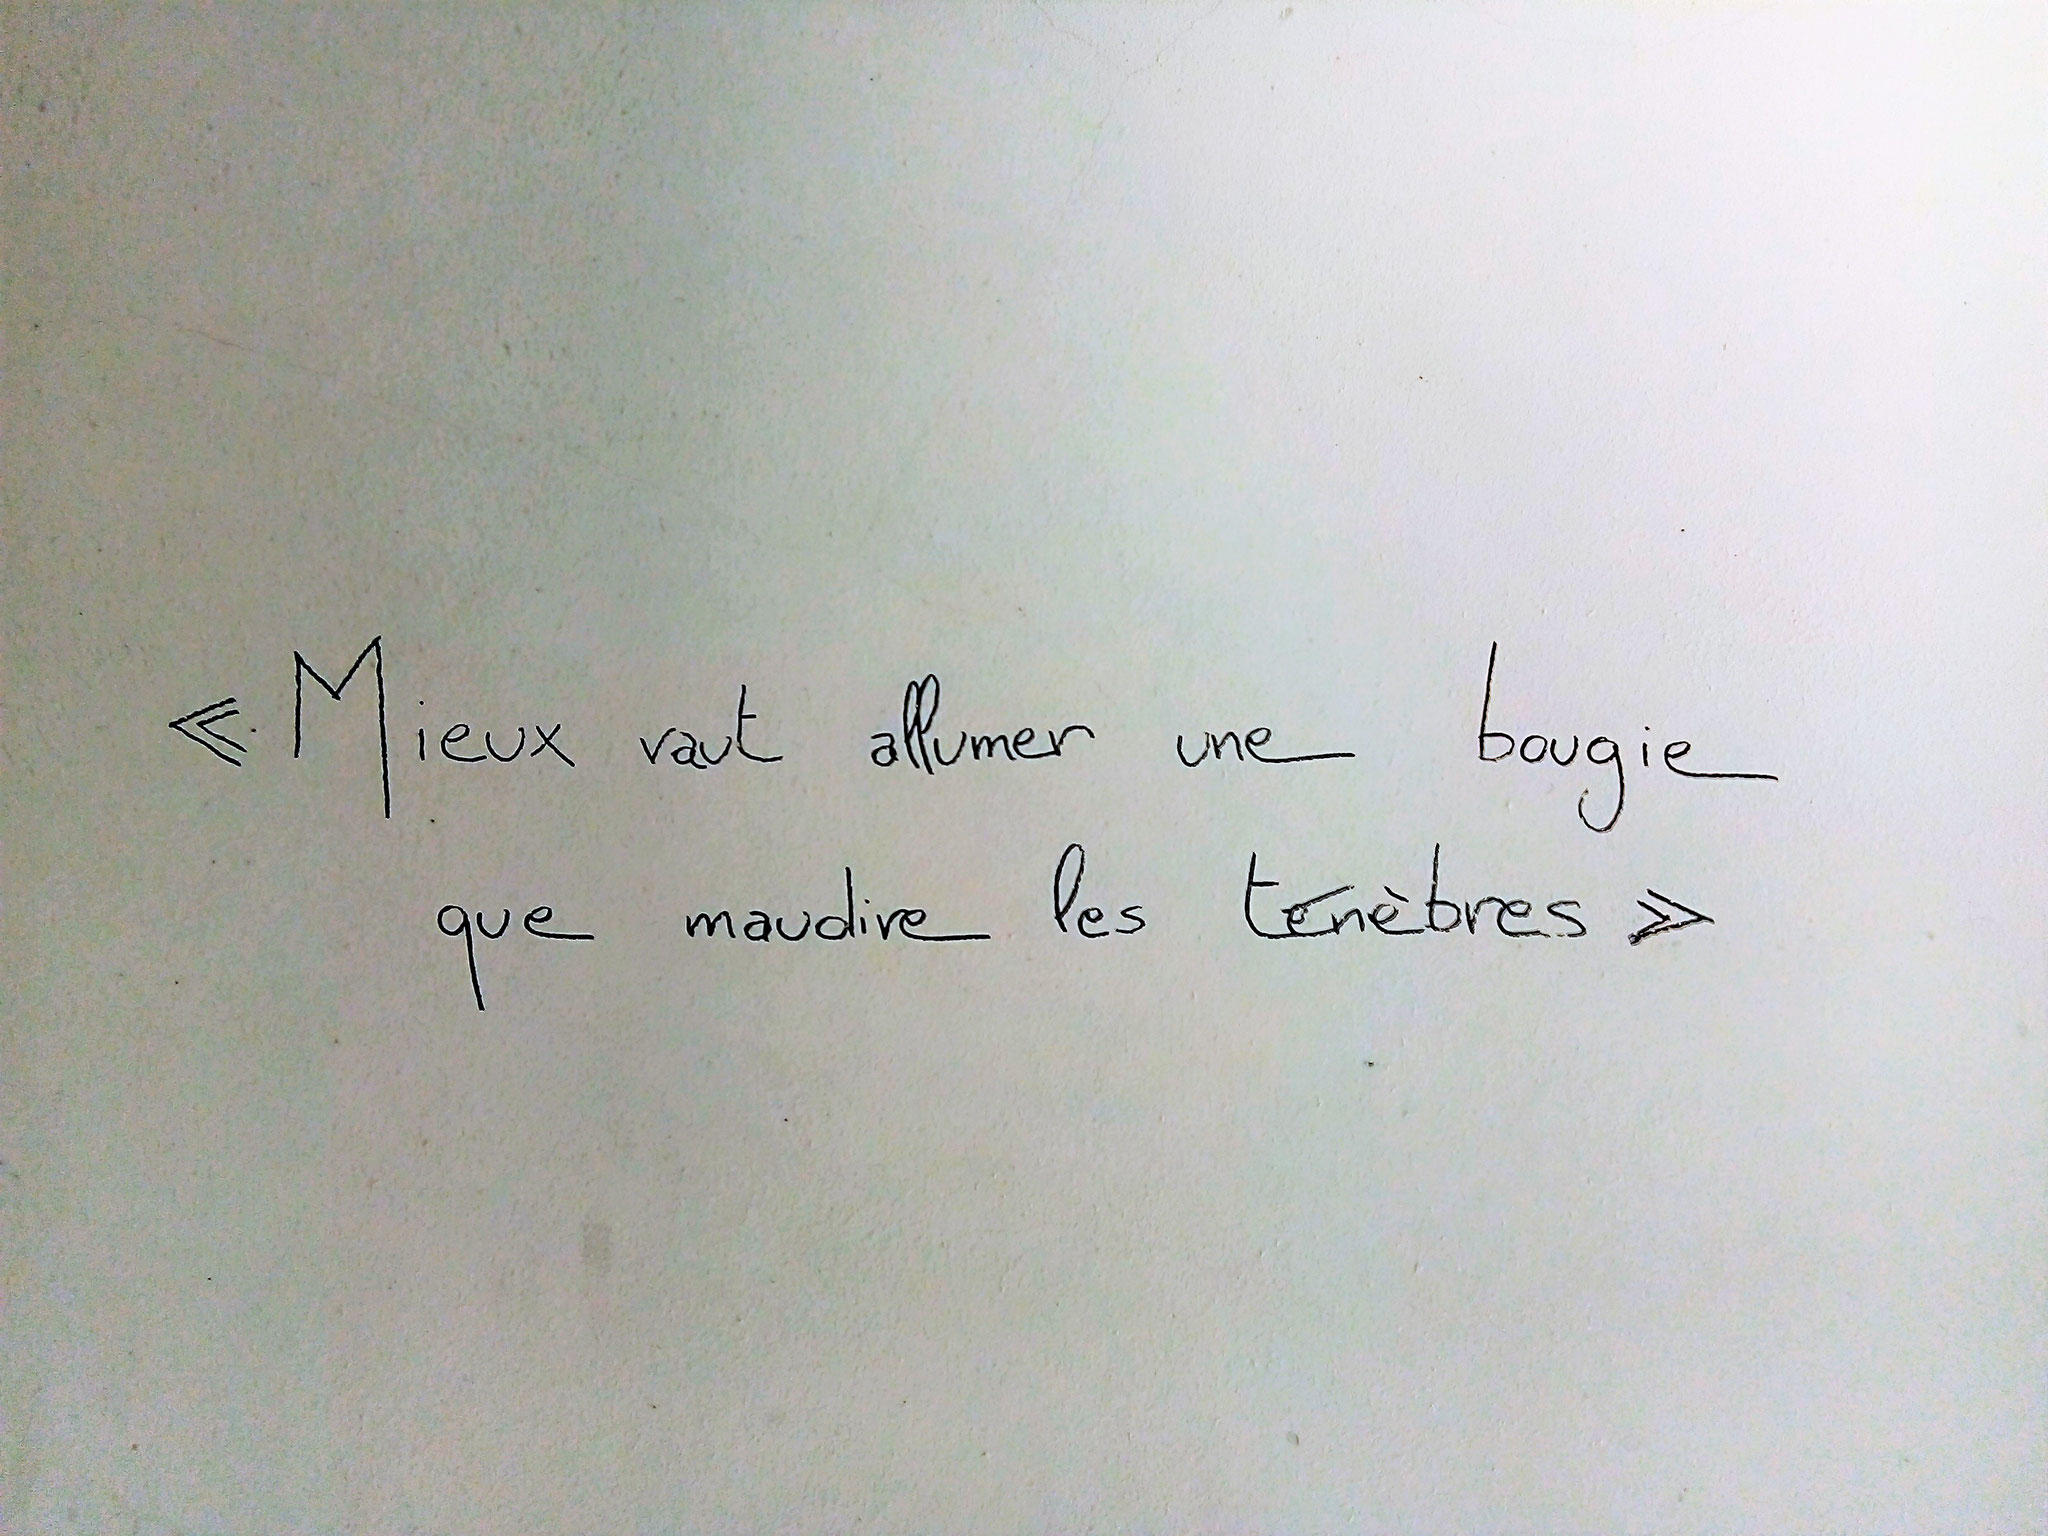 « Mieux vaut allumer une bougie
que maudire les ténèbres »